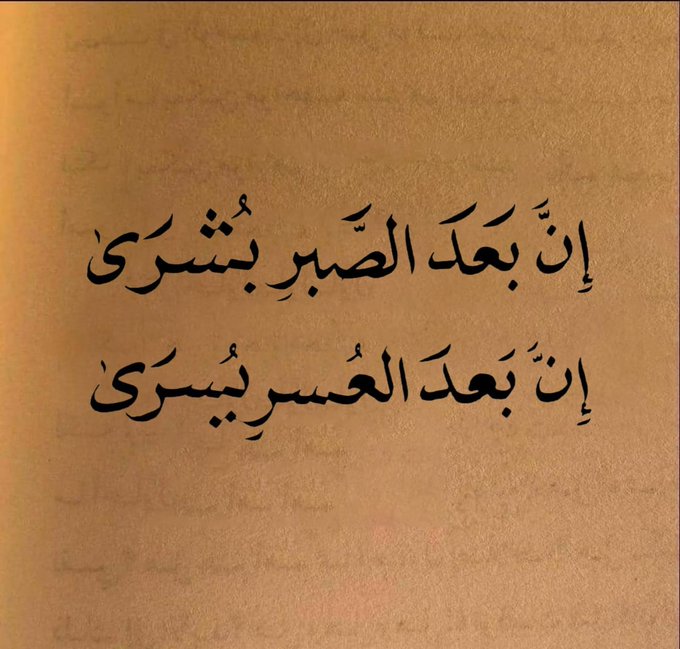 إِنَّ بَعَدَ الصَّبرِ بُشرَىٰ
إِنَّ بَعدَ العُسرِ يُسرَىٰ